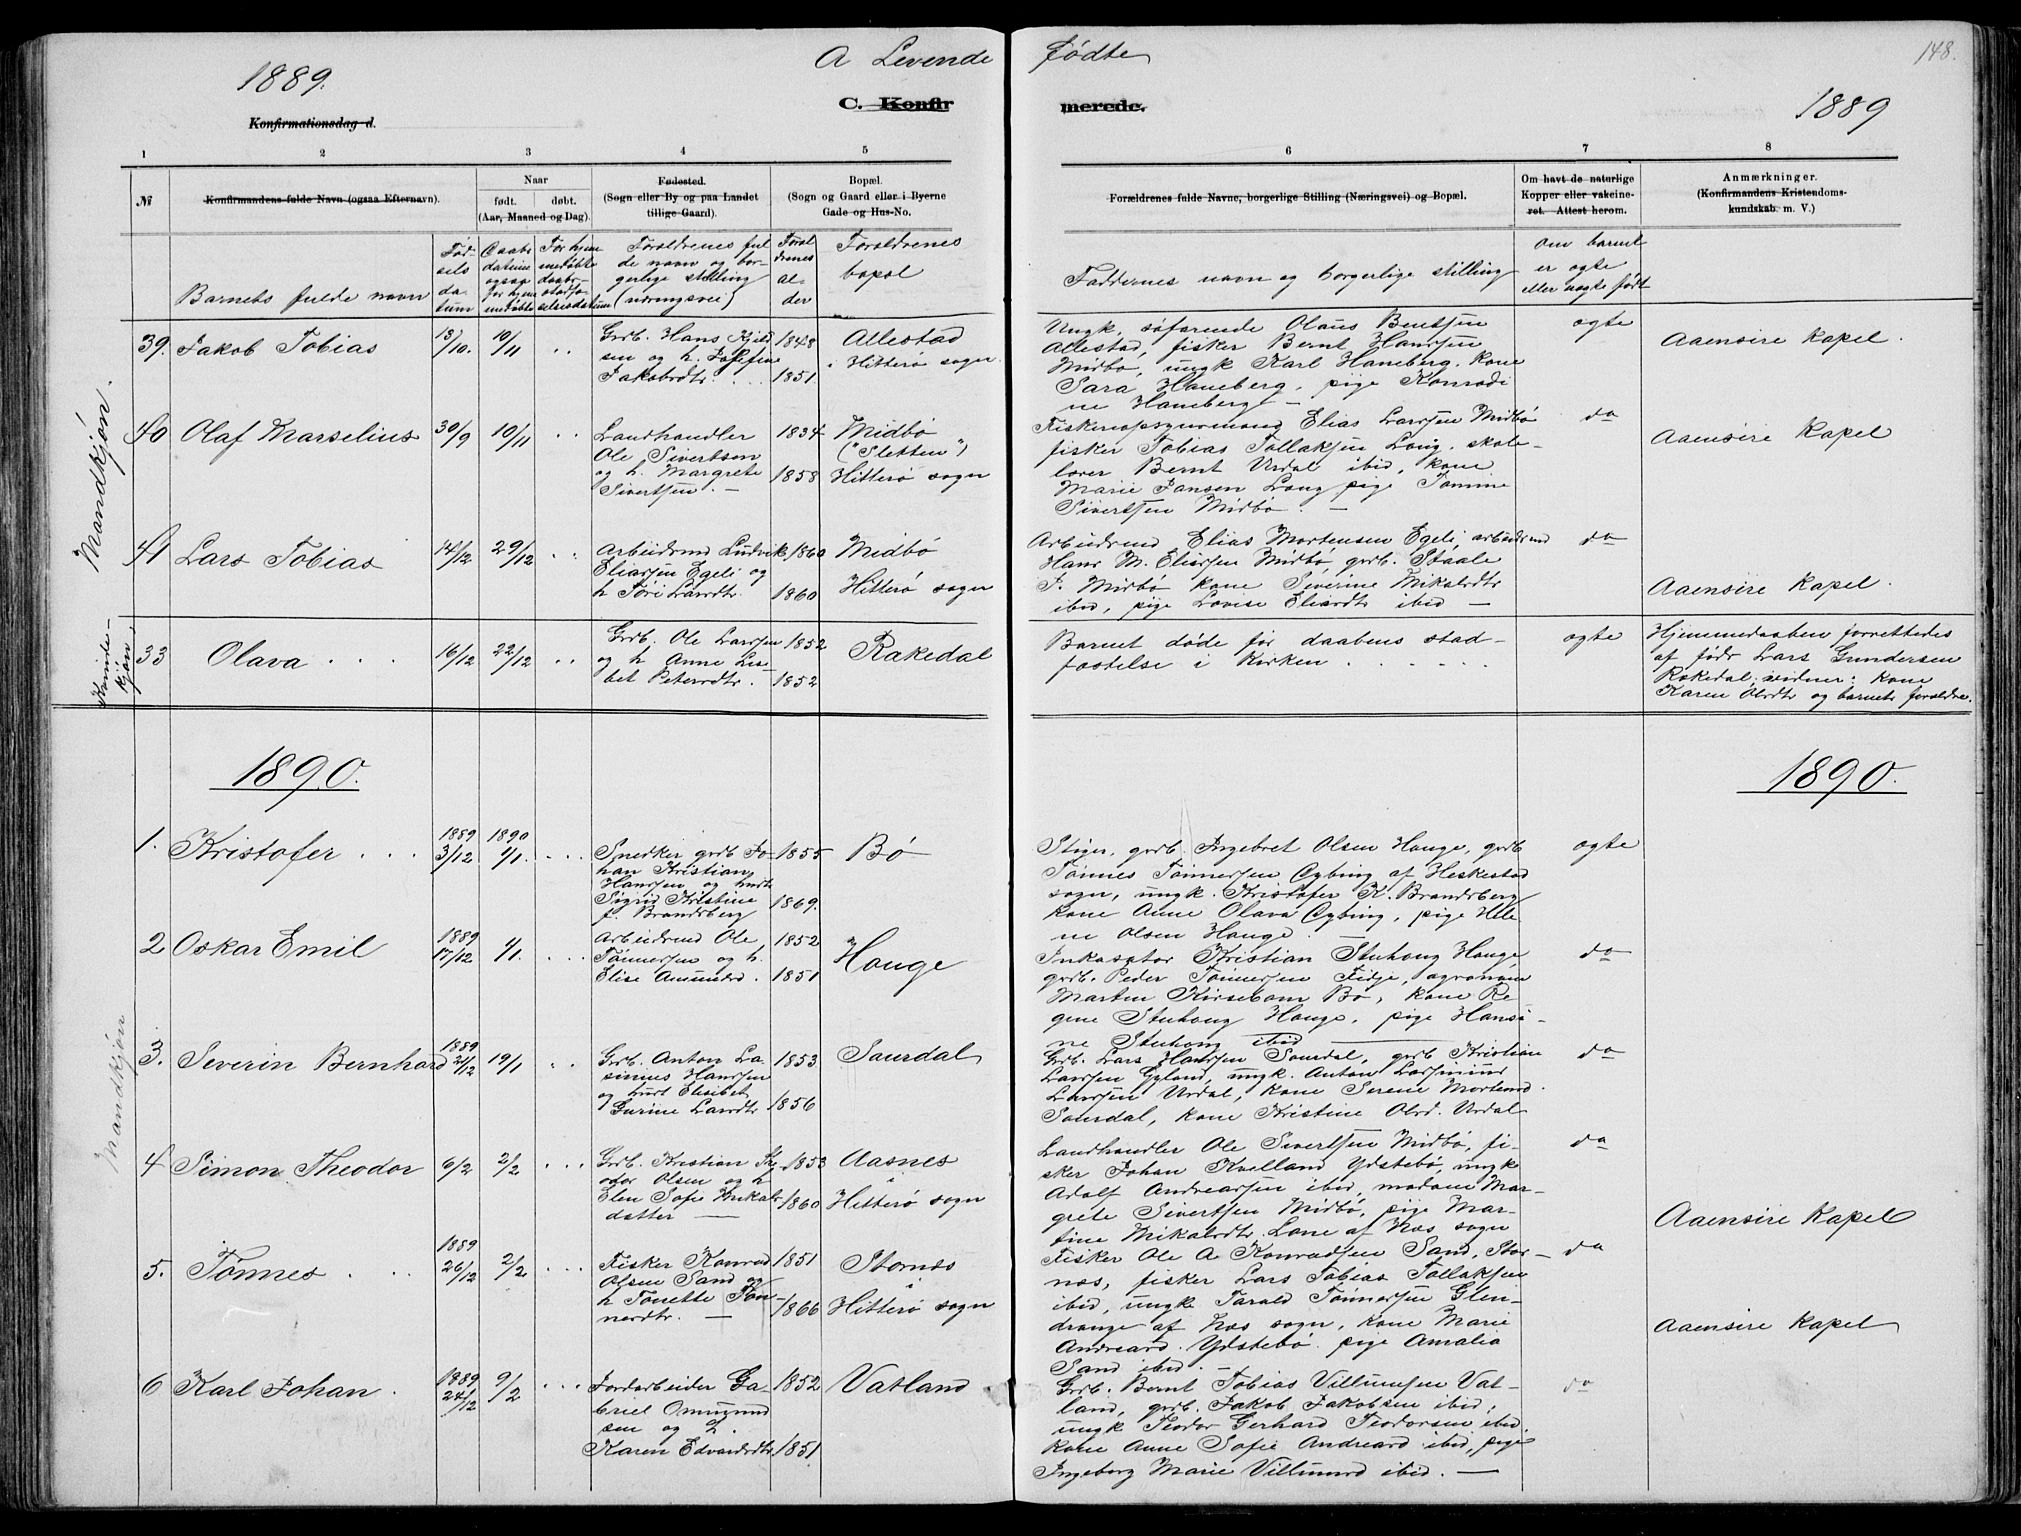 148.
A Levende fødte
1889.
C. Konfirmerede.
1889
Konfirmationsdag d.
1 2 3 4 5 6 7 8
№
Konfirmandens fulde Navn (ogsaa Efternavn).
Naar
født. døbt.
(Aar, Maaned og Dag).
Fødested.
(Sogn eller By og paa Landet
tillige Gaard).
Bopæl.
(Sogn og Gaard eller i Byerne
Gade og Hus-No.
Forældrenes fulde Navne, borgerlige Stilling (Næringsvei) og Bopæl.
Om havt de naturlige
Kopper eller vakcine-
ret. Attest herom.
Anmærkninger.
(Konfirmandens Kristendoms-
kundskab m. V.)
Barnets fulde navn
Fød-
sels
da-
tum
Daabs
datum
ogsaa
for hjem
medøbte
For hjem
medøbte
daabs
stadfæ
stelsesdatum
Forældrenes ful
de navn og bor-
gerlige stilling
(næringsvei)
Foræl
drenes
al-
der
Forældrenes
bopæl
Faddernes navn og borgerlige stilling
Om barnet
er ægte
eller uægte født
Mandkjøn.
39. Jakob Tobias
13/10. 10/11
Grb. Hans Kjeld
sen og h. Josefine
Jakobsdtr.
1848
1851.
Allestad
i Hitterø sogn.
Ungk. søfarende Olaus Berntsen
Allestad, fisker Bernt Hanssen
Midbø, ungk Karl Haneberg, kone
Sara Haneberg, pige Konradi
ne Haneberg —
ægte
Aaensire Kapel.
40 Olaf Marselius
30/9 10/11
Landhandler
Ole Sivertsen
og h. Margrete
Sivertsen. —
1834
1858
Midbø
("Sletten")
Hitterø sogn
Fiskeriopsynsmand Elias Larssen Midbø
fisker Tobias Tollaksen Loug, skole-
lærer Bernt Urdal ibid, kone
Marie Jansen Loug pige Tomine
Sivertsen Midbø —
do
Aaensire Kapel
41 Lars Tobias
14/12 29/12
Arbeidsmd Ludvik
Eliassen Egeli og
h Tøri Larsdtr.
1860
1860
Midbø
Hitterø sogn
Arbeidsmd Elias Mortensen Egeli, arbeidsmd
Hans M. Eliassen Midbø, grb. Staale
F. Midbø kone Severine Mikalsdtr
ibid, pige Lovise Eliasdtr ibid —
do
Aaensire Kapel.
Kvinde-
kjøn.
33 Olava
16/12 22/12
Grb. Ole Larssen
og h Anne Lis
bet Petersdtr.
1852
1852
Rakedal
Barnet døde før daabens stad-
fæstelse i kirken
ægte
Hjemmedaaben forrettedes
af fødr Lars Gundersen
Rakedal; vidner: kone
Karen Olsdtr og barnets forældre.
1890.
1890.
Mandkjøn
1. Kristofer
1889
3/12
1890
1/1.
Snedker grdb Jo-
han Kristian
Hanssen og hustr
Sigrid Kristine
f. Brandsberg
1855
1869.
Bø
Stiger, grdb. Ingebret Olsen Hauge, grdb
Tønnes Tønnessen Eybing af Heskestad
sogn, ungk. Kristofer K. Brandsberg
kone Anne Olava Eybing, pige Hele
ne Olsen Hauge.
ægte
2 Oskar Emil
1889
17/12
1/1.
Arbeidsmd Ole
Tønnessen og h.
Elise Amundsd.
1852
1851
Hauge
Inkasator Kristian Stuhoug Hauge
grb. Peder Tønnessen Fidje, agronom
Marten Kirsebom Bø, kone Re
gene Stuhoug Hauge, pige Hansi-
ne Stuhoug ibid
do
3. Severin Bernhard
1889
21/12
19/1
Grb. Anton La-
sinius Hanssen
og hust Elisabet
Gurine Larsdtr
1853
1856
Saurdal
Grb. Lars Hanssen Saurdal, grb Kristian
Larssen Gyland, ungk. Anton Lasinius
Larssen Urdal, kone Serene Mortensd.
Saurdal, kone Kristine Olsd. Urdal
do
4 Simon Theodor
6/2 2/2
Grb. Kristian Te
odor Olsen og h
Elen Sofie Mikals
datter —
1853
1860
Aasnes
i
Hitterø sogn
Landhandler Ole Sivertsen Midbø, fi-
sker Johan Kvelland Ydstebø, ungk
Adolf Andreassen ibid, madam Mar-
grete Sivertsen Midbø, pige Mar-
tine Mikalsdtr. Lone af Næs sogn
do
Aaensire Kapel
5. Tønnes
1889
26/12
2/2
Fisker Konrad
Olsen Sand og
h Tonette Tøn-
nesdtr. —
1851
1866
Stornæs
i
Hitterø sogn
Fisker Ole A Konradsen Sand, Stor-
næs, fisker Lars Tobias Tollaksen
ibid, ungk Tarald Tønnessen Glen-
drange af Næs sogn, kone Marie
Andreasd. Ydstebø. pige Amalia
Sand ibid. —
do
Aaensire Kapel
6 Karl Johan.
1889
24/12
9/2
Jordarbeider Ga-
briel Omund
sen og h.
Karen Edvardsdtr
1852
1851
Vatland
Grb. Bernt Tobias Villumsen Vat-
land, grb. Jakob Jakobsen ibid,
ungk Teodor Gerhard Teodorsen ibid.
kone Anne Sofie Andreasd ibid, pige
Ingeborg Marie Villumsd ibid. —
do